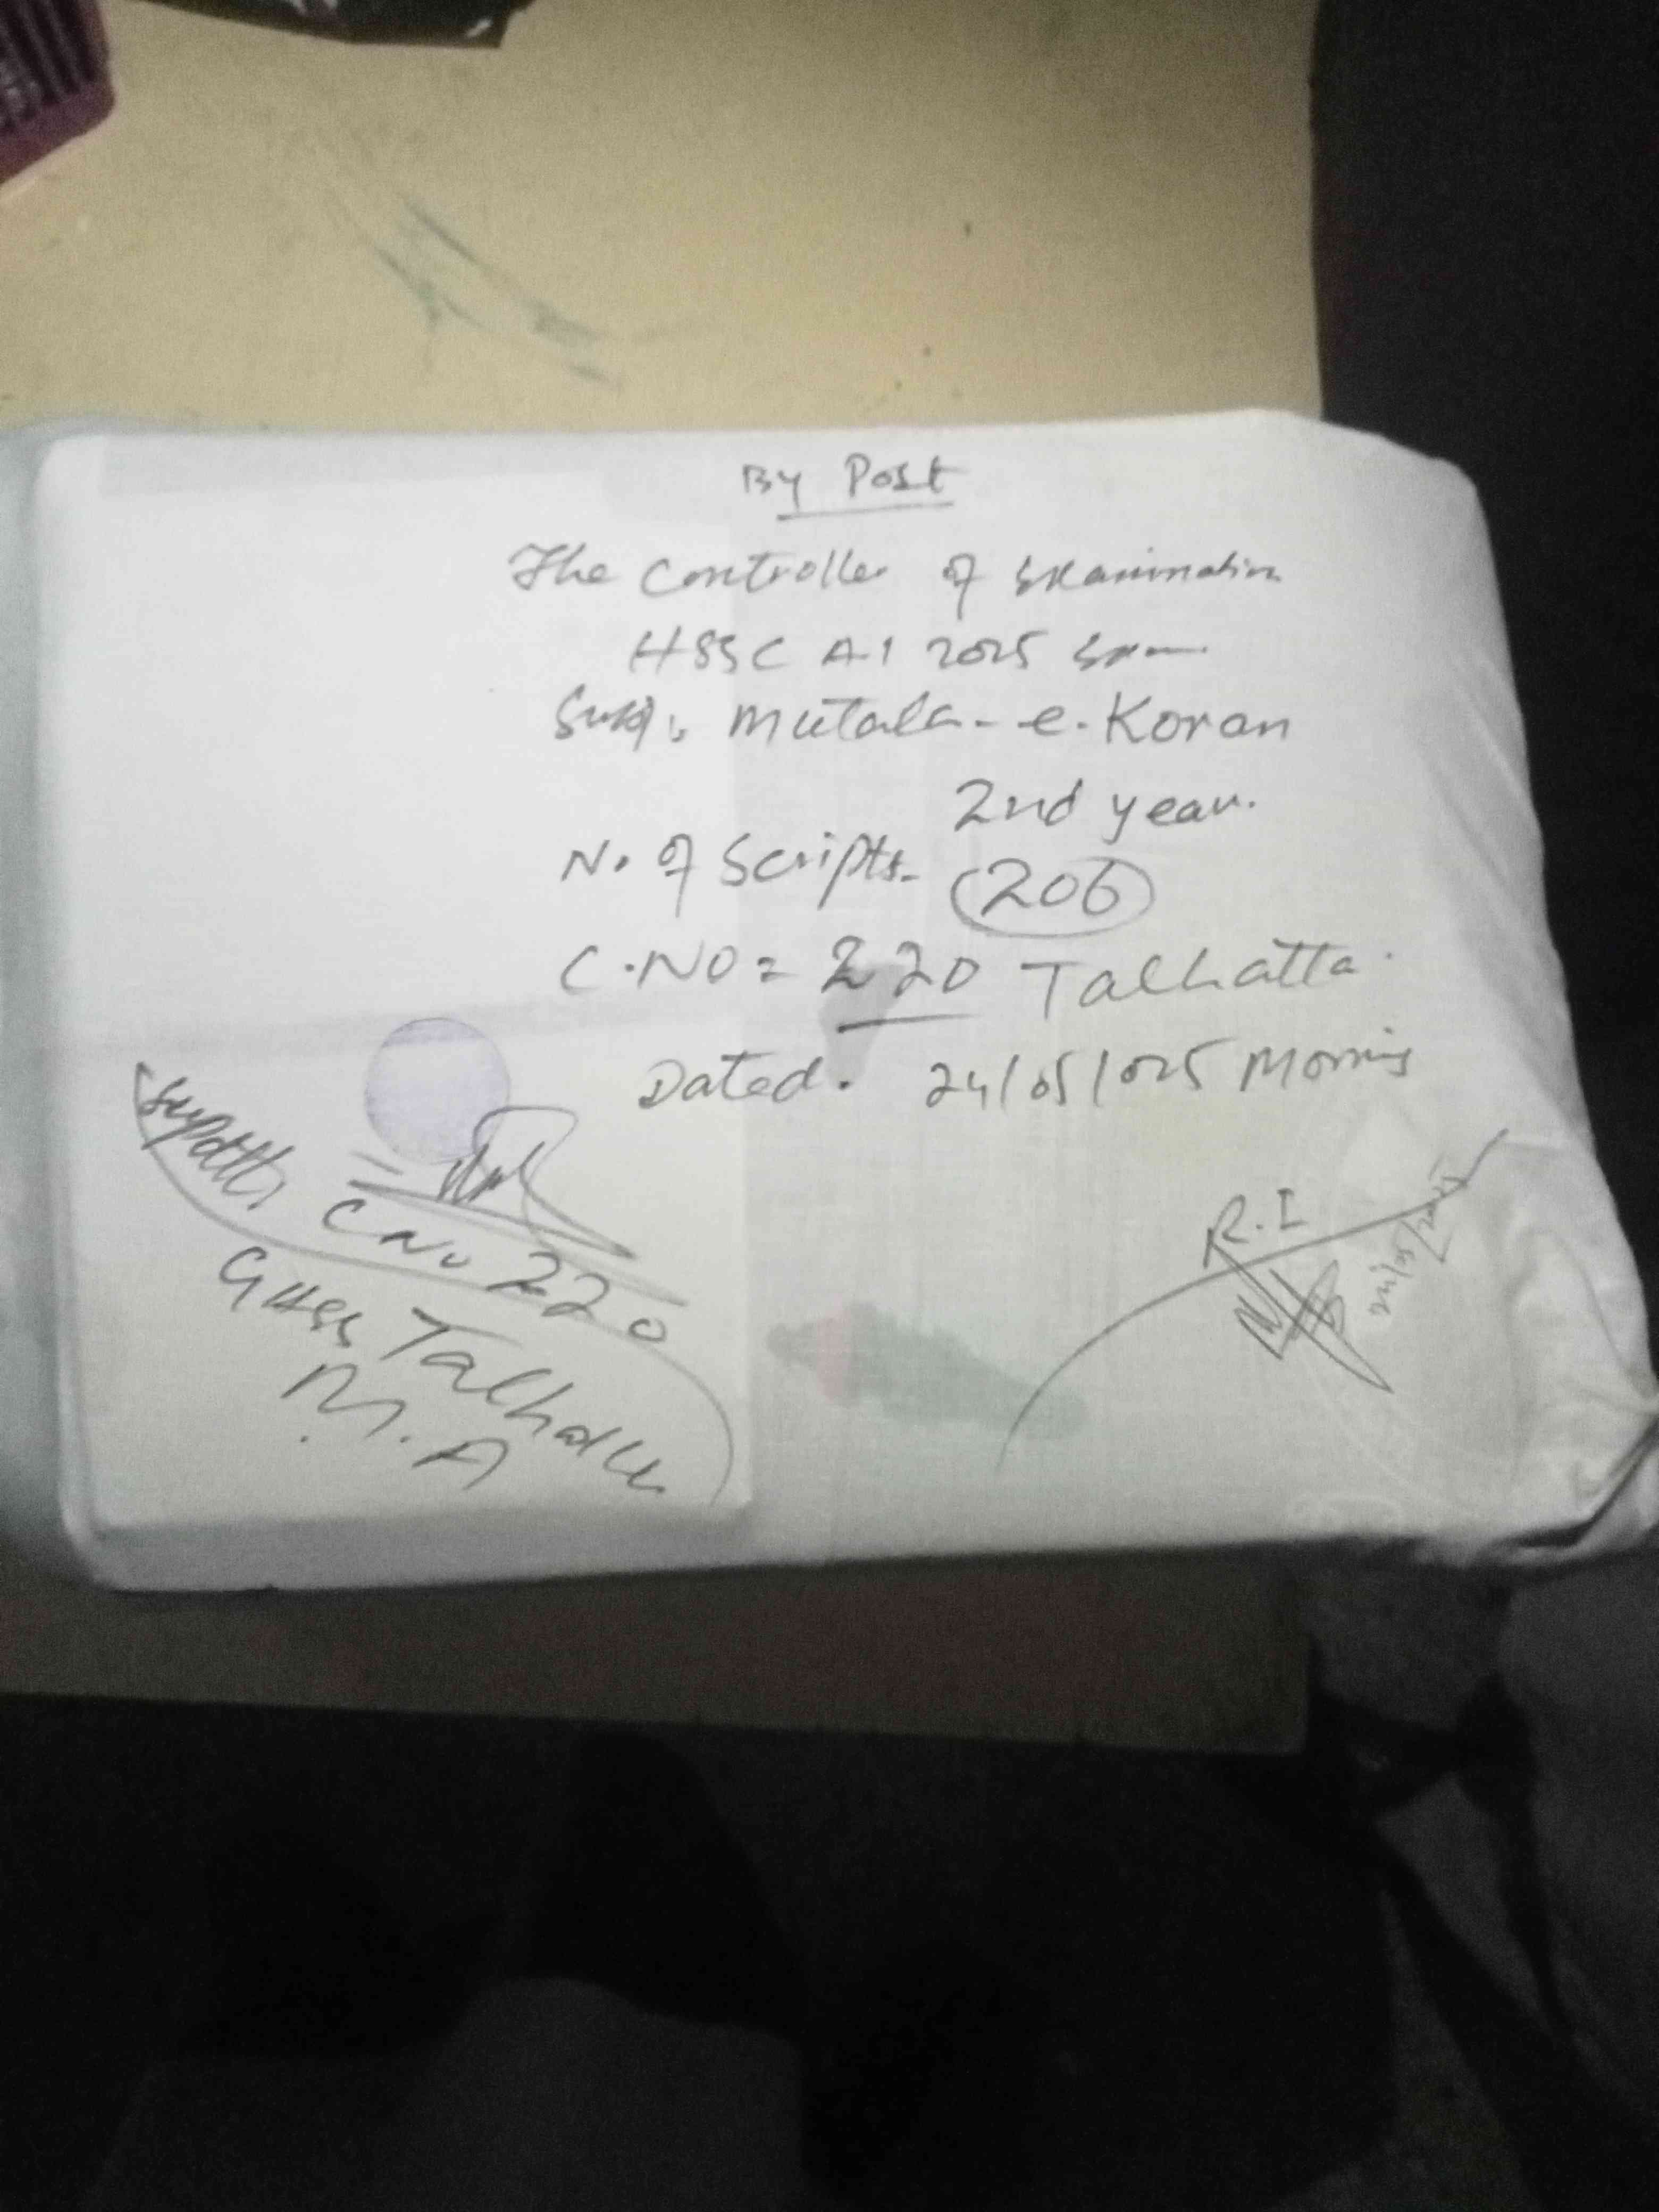 By Post
The Controller of Examination
HSSC A-I 2025 Exam
Subj: Mutala-e-Koran
2nd year.
N. of Scripts- 206
C.NO = 220 Talhatta.
Dated. 24/05/025 Morning
Supdtt,
C No 220
GHSS Talhatta
M.A
R.I
24/05/2025